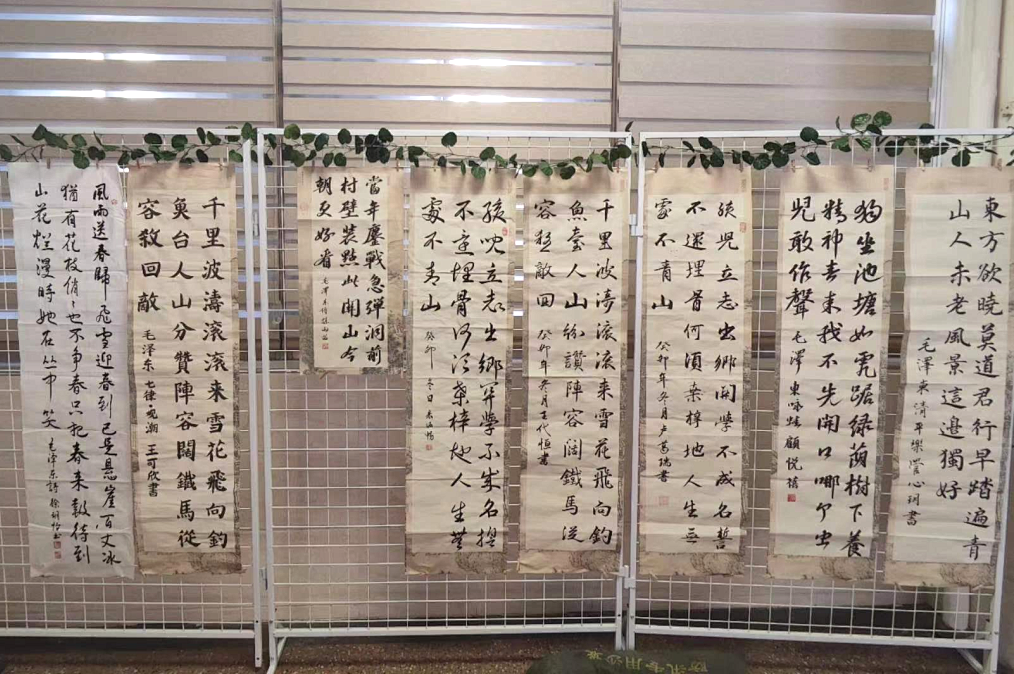 東方欲曉莫道君行早踏遍青
山人未老風景這邊獨好
毛澤東清平樂 心玥書
獨坐池塘如虎踞绿蔭樹下養
精神春来我不先開口哪个虫
兒敢作聲 毛澤東咏蛙 顧悦禧
孩兒立志出鄉関學不成名誓
不還埋骨何須桑梓地人生無
處不青山 癸卯年冬月卢茗瑞書
千里波涛滚滚来雪花飛向釣
魚臺人山紛讚陣容阔鐵馬從
容殺敵回 癸卯年冬月王代恒書
孩兒立志出鄉関學不成名誓
不還埋骨何須桑梓地人生無
處不青山 癸卯冬日
當年鏖戰急弹洞前
村壁装點此関山今
朝更好看 毛澤東詩
千里波濤滚滚来雪花飛向釣
魚台人山分贊陣容闊鐵馬從
容殺回敵 毛泽东七律观潮 王可欣書
風雨送春歸飛雪迎春到已是懸崖百丈冰
猶有花枝俏俏也不爭春只把春来報待到
山花烂漫時她在丛中笑 毛澤東詩
防汛专用沙袋